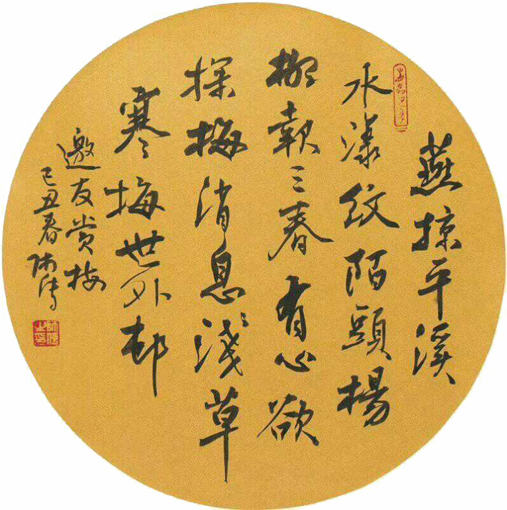 燕掠平溪
水漾纹陌頭楊
柳報三春有心欲
探梅消息淺草
寒梅世外邨
邀友賞梅
己丑春